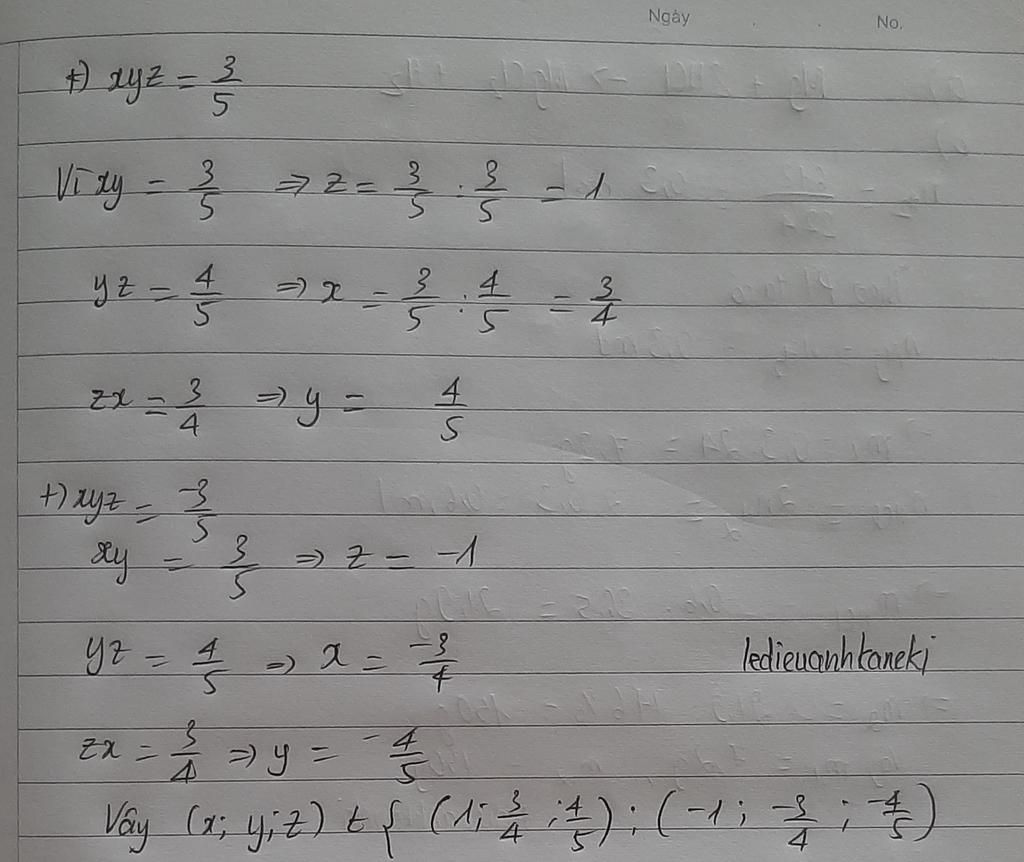 Ngày . . No.
+) xyz = 3/5
Vì xy = 3/5 => z = 3/5 : 3/5 = 1
yz = 4/5 => x = 3/5 : 4/5 = 3/4
zx = 3/4 => y = 4/5
+) xyz = -3/5
xy = 3/5 => z = -1
yz = 4/5 => x = -3/4
ledieuanhkaneki
zx = 3/4 => y = -4/5
Vậy (x; y; z) ∈ { (1; 3/4; 4/5); (-1; -3/4; -4/5)